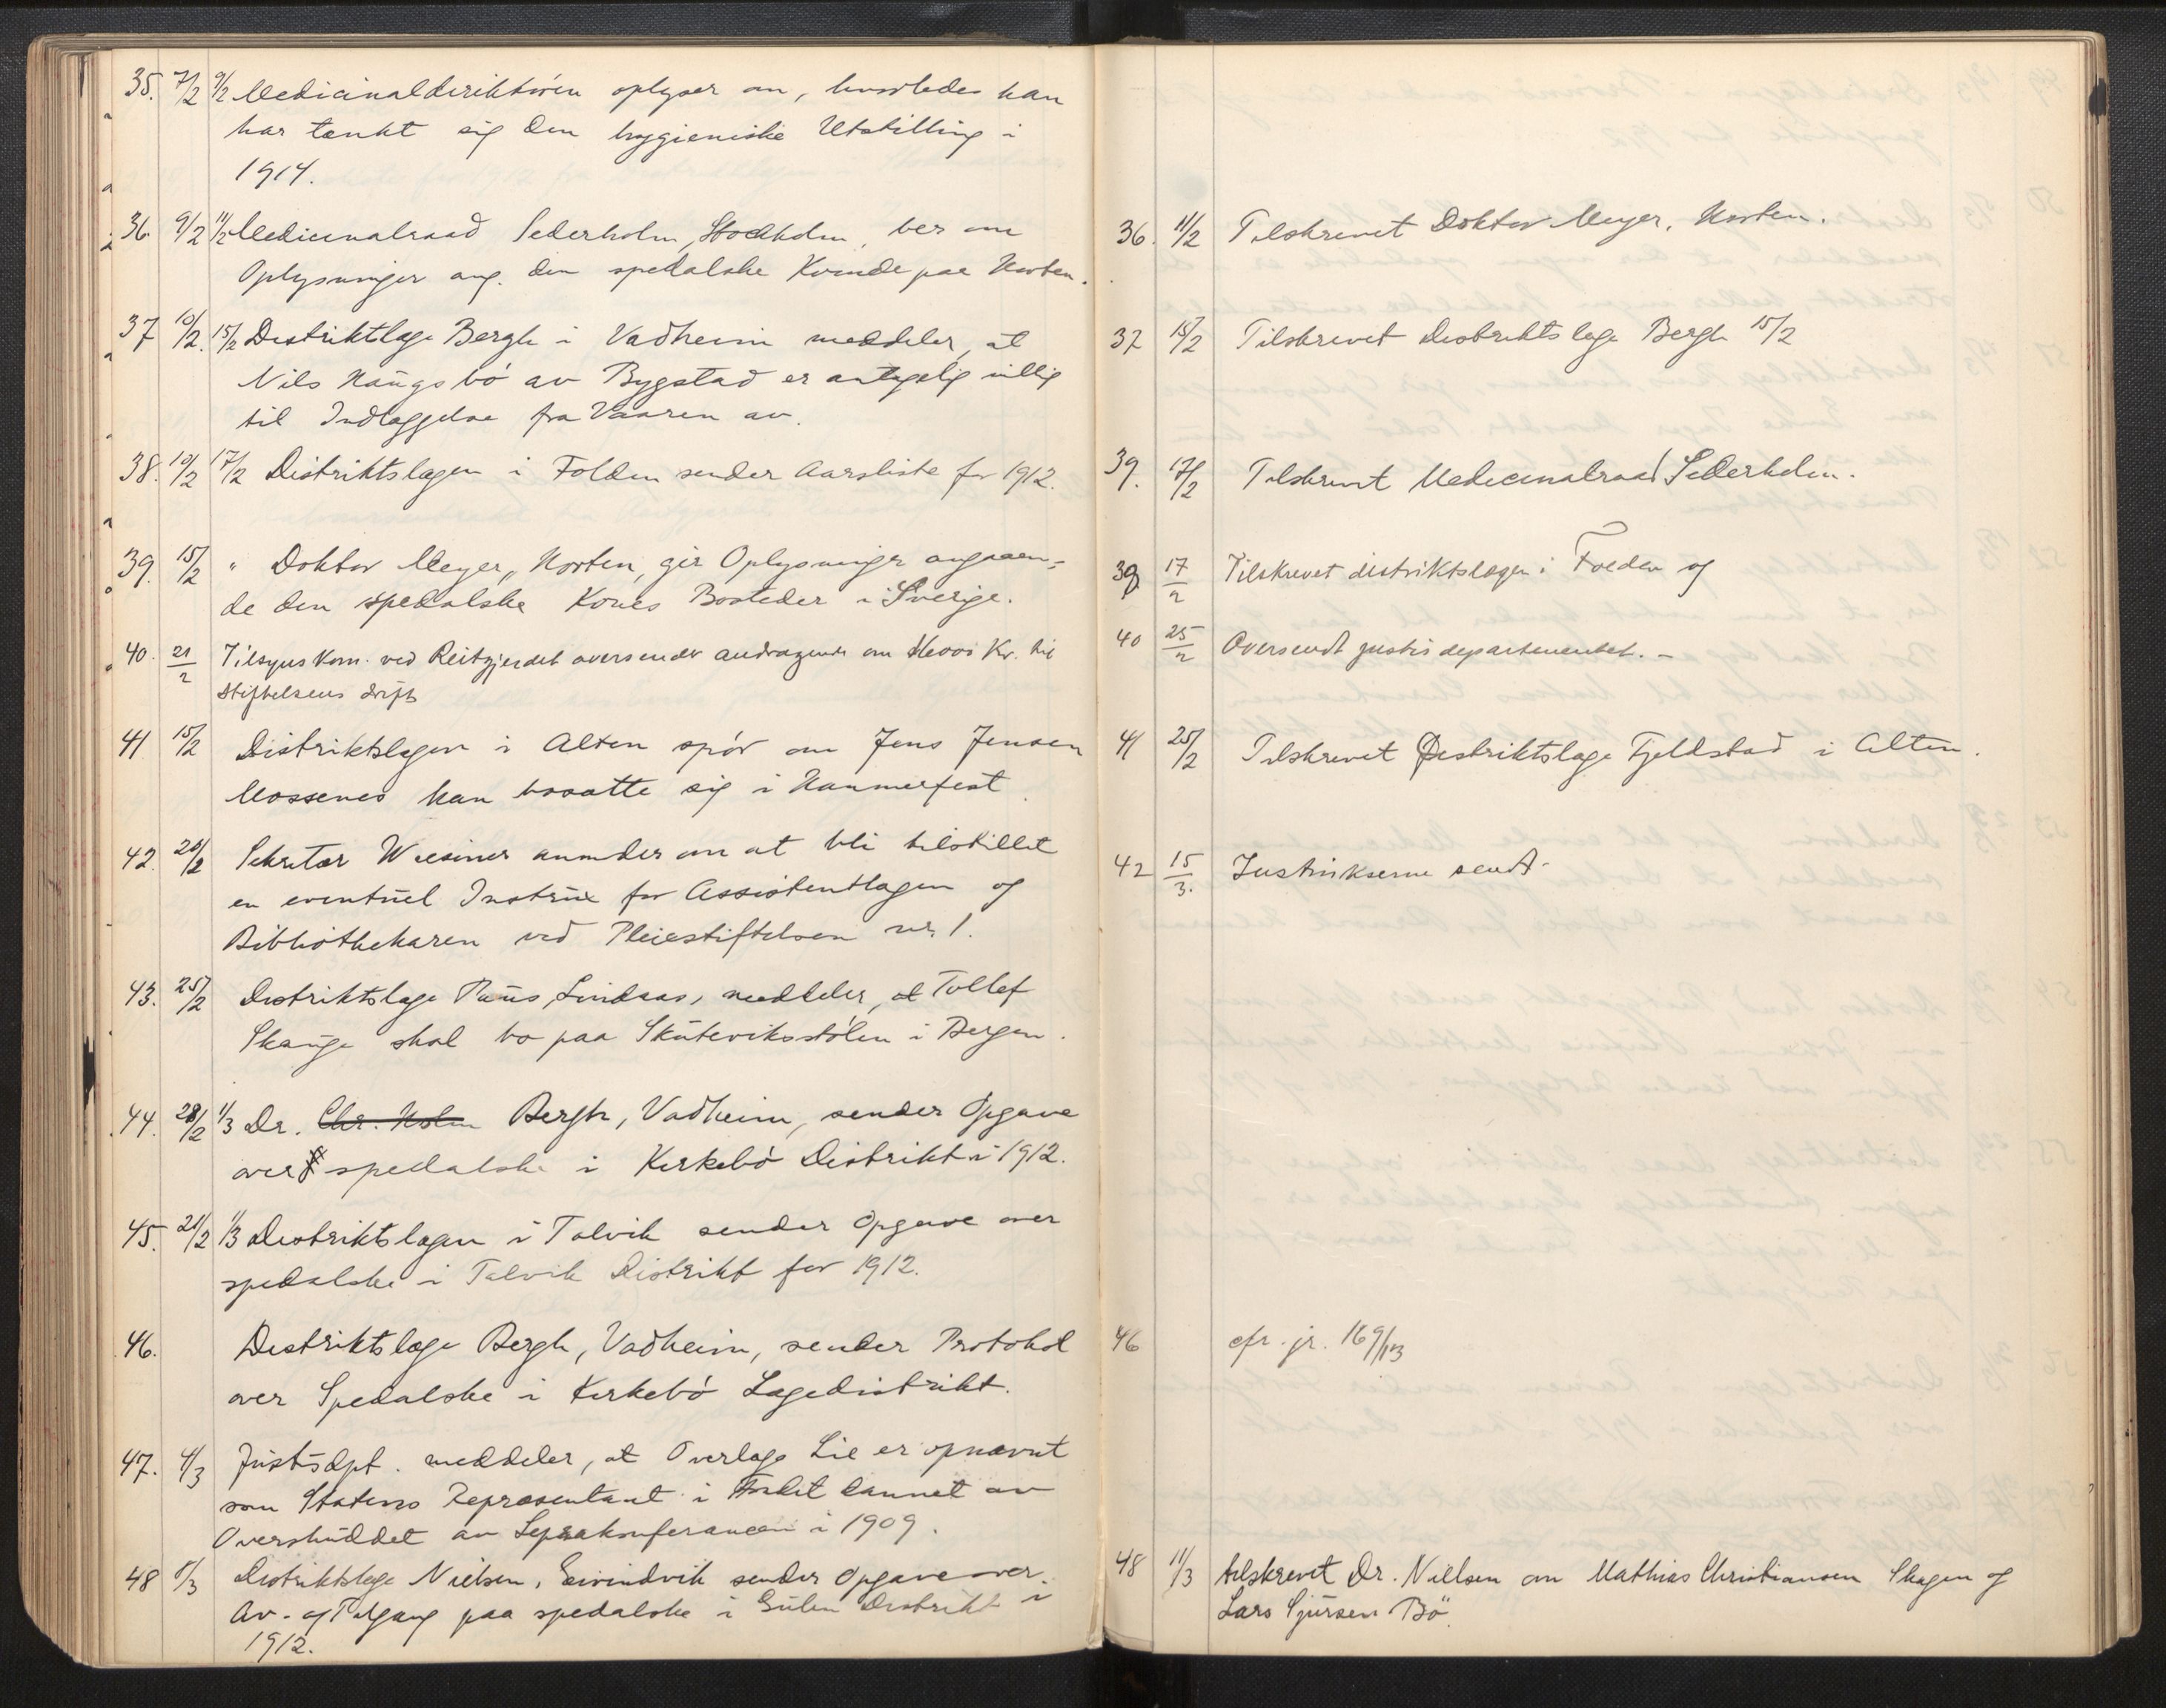 35. 7/2 9/2 Medicinaldirektören oplyser om, hvorledes han
har tænkt sig den hygieniske Utstilling i
1914.
36. 9/2 11/2 Medicinalraad Sederholm, Stockholm, ber om
Oplysninger ang. den spedalske Kvinde paa Horten.
37 10/2. 15/2 Distriktslæge Bergh i Vadheim meddeler, at
Nils Haugsbö av Bygstad er antagelig villig
til Indlæggelse fra Vaaren av.
38. 10/2 17/2 Distriktslægen i Folden sender Aarsliste for 1912.
39. 15/2 " Doktor Meyer, Horten, gir Oplysninger angaaen-
de den spedalske Kones Bosteder i Sverige.
40. 21/2 Tilsyns Kom. ved Reitgjerdet oversender andragende om Kr. til
Stiftelsens drift
41 15/2 Distriktslægen i Alten spör om Jens Jensen
Mossenes kan bosætte sig i Hammerfest.
42. 20/2 Sekretær Wiesener anmoder om at bli tilstillet
en eventuel Instrux for Assistentlægen og
Bibliothekaren ved Pleiestiftelsen nr. 1.
43. 25/2 Distriktslæge Paus, Lindaas, meddeler, at Tollef
Skauge skal bo paa Skutevikstölen i Bergen.
44. 28/2 1/3 Dr. Chr. Holm Bergh, Vadheim, sender Opgave
over spedalske i Kirkebö Distrikt i 1912.
45. 21/2 1/3 Distriktslægen i Talvik sender Opgave over
spedalske i Talvik Distrikt for 1912.
46. Distriktslæge Bergh, Vadheim, sender Protokol
over Spedalske i Kirkebö Lægedistrikt.
47. 4/3 Justisdpt. meddeler, at Overlæge Lie er opnævnt
som Statens Repræsentant i Fondet dannet av
Overskuddet av Leprakonferancen i 1909.
48 5/3 Distriktslæge Nielsen, Eivindvik sender Opgave over
Av- og Tilgang paa spedalske i Gulen Distrikt i
1912.
36. 11/2 Tilskrevet Doktor Meyer, Horten.
37 15/2 Tilskrevet Distriktslæge Bergh 15/2
39. 17/2 Tilskrevet Medicinalraad Sederholm.
38 17/2 Tilskrevet distriktslægen i Folden og
40 25/2 Oversendt justisdepartementet. –
41 25/2 Tilskrevet Distriktslæge Fjeldstad i Alten.
42 15/3. Instrukserne sendt.
46 cfr. jr. 169/13
48 11/3 tilskrevet Dr. Nielsen om Mathias Christiansen Skagen og
Lars Sjursen Bö.